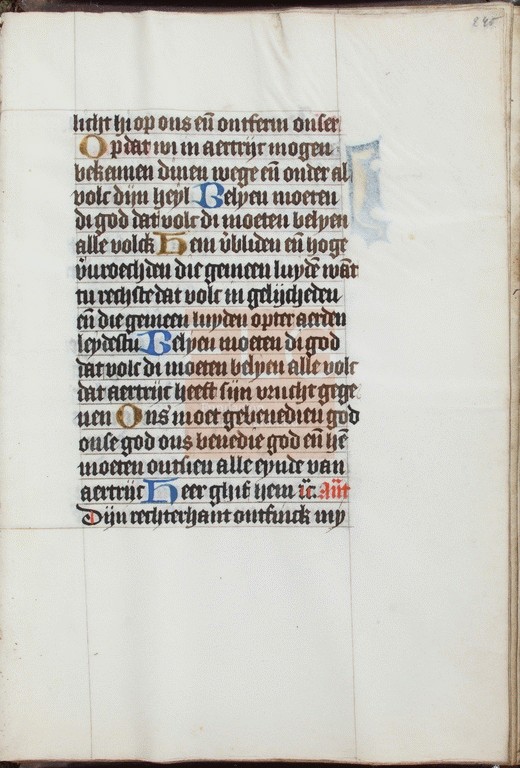 245
licht hi op ons en̄ ontferm onser
Opdat wi in aertrijc mogen
bekennen dinen wege en̄ onder al
volc dijn heyl Belyen moeten
di god dat volc di moeten belyen
alle volck Hem v̄bliden en̄ hoge
v̄uroechden die gemeen luydē wāt
tu rechste dat volc in gelijcheden
en̄ die gemeen luyden opter aerden
leydestu Belyen moeten di god
dat volc di moeten belyen alle volc
dat aertrijc heeft sijn vrucht gege
uen Ons moet gebenedien god
onse god ons benedie god en̄ hē
moeten ontsien alle eynde van
aertrijc Heer ghif hem ic̄. An̄t
Dijn rechterhant ontfinck my